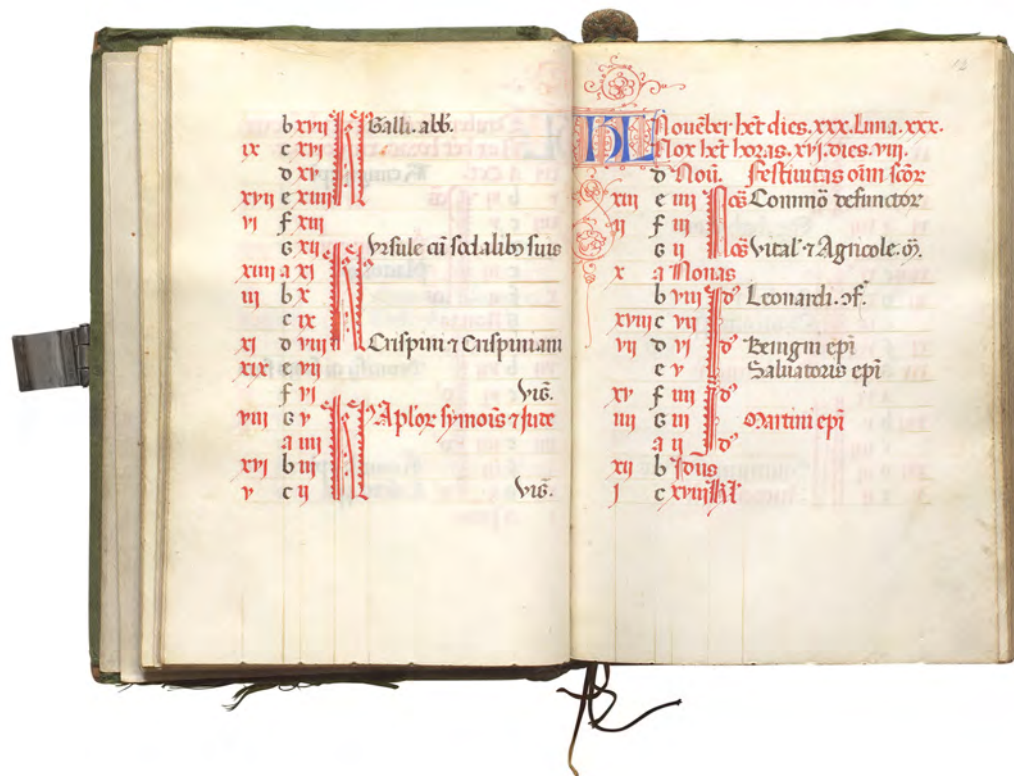 b xvii Galli. abb̄.
ix c xvi
d xv
xvii e xiiii
vi f xiii
G xii Vrsule cū sodalibꝰ suis
xiiii a xi
iii b x
c ix
xi d viii Crispini ⁊ Crispiniani
xix e vii
f vi Vig̃.
viii G v Aplor̄ symōis ⁊ Jude
a iiii
xvi b iii
v c ii Vig̃.
KL Nouēber hēt dies. xxx. Luna. xxx.
Nox hēt horas. xvj. dies. viii.
d Noū. Festiuitas oīm scōr
xiii e iiii Commō defunctor
ii f iii
G ii Vital' ⁊ Agricole. m̄.
x a Nonas
b viii Leonardi. ɔf.
xviii c vii
vii d vi Benigni ep̄i
e v Saluatoris ep̄i
xv f iiii
iiii G iii Martini ep̄i
a ii
xii b Jdus
j c xviii kl